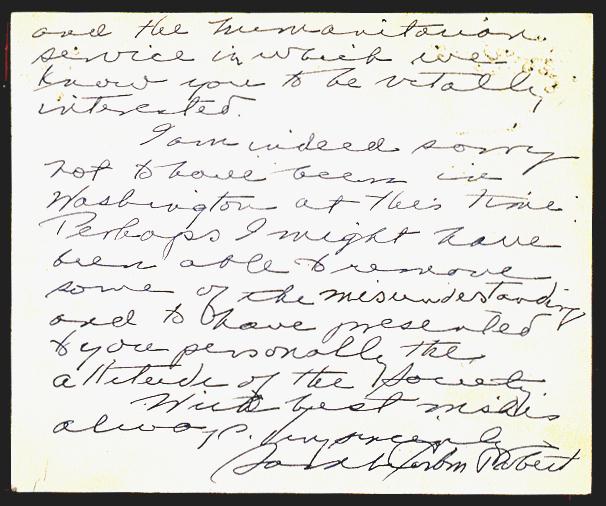 and the humanitarian
service in which we
know you to be vitally
interested.
I am indeed sorry
not to have been in
Washington at this time.
Perhaps I might have
been able to remove
some of the misunderstanding
and to have presented
to you personally the
attitude of the Society.
With best wishes
always. my sincerely
Robert